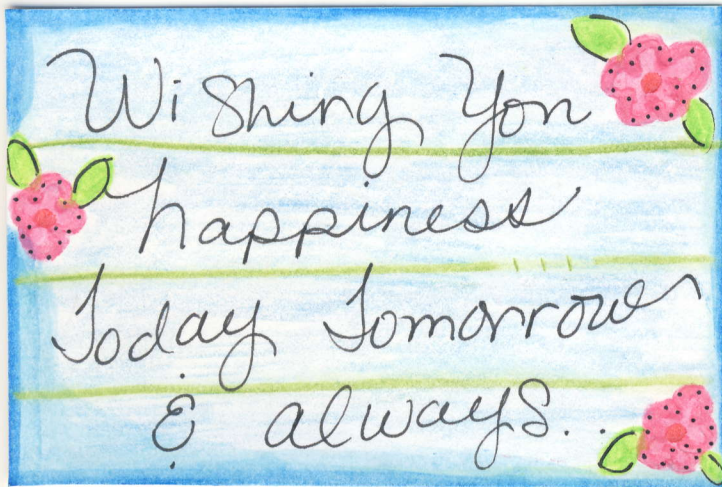 Wishing You
happiness
Today Tomorrow
& always...